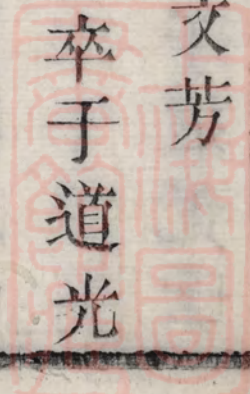 文芳
卒于道光